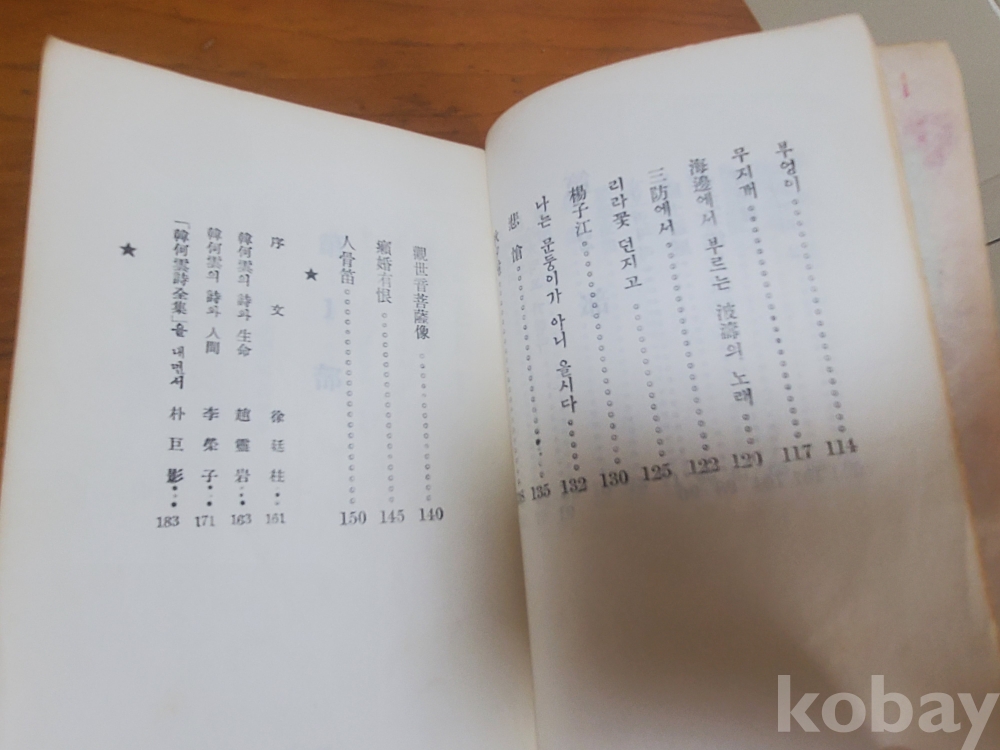 부엉이 114
무지개 117
海邊에서 부르는 波濤의 노래 120
三防에서 122
리라꽃 던지고 125
楊子江 130
나는 문둥이가 아니 올시다 132
悲愴 135
觀世音菩薩像 140
癩婚有恨 145
人骨笛 150
★
序文 徐廷柱 161
韓何雲의 詩와 生命 趙靈岩 163
韓何雲의 詩와 人間 李榮子 171
「韓何雲詩全集」을 내면서 朴巨影 183
★
kobay